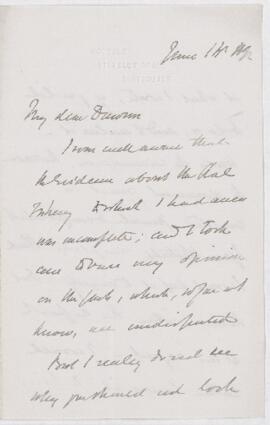 June 1st
My dear Dawson
I am well aware that
the evidence about the
to which I had access
was incomplete; and I took
care to base my opinion
on the facts, which, so far as I
know, are undisputed
But I really do not see
why you should not look